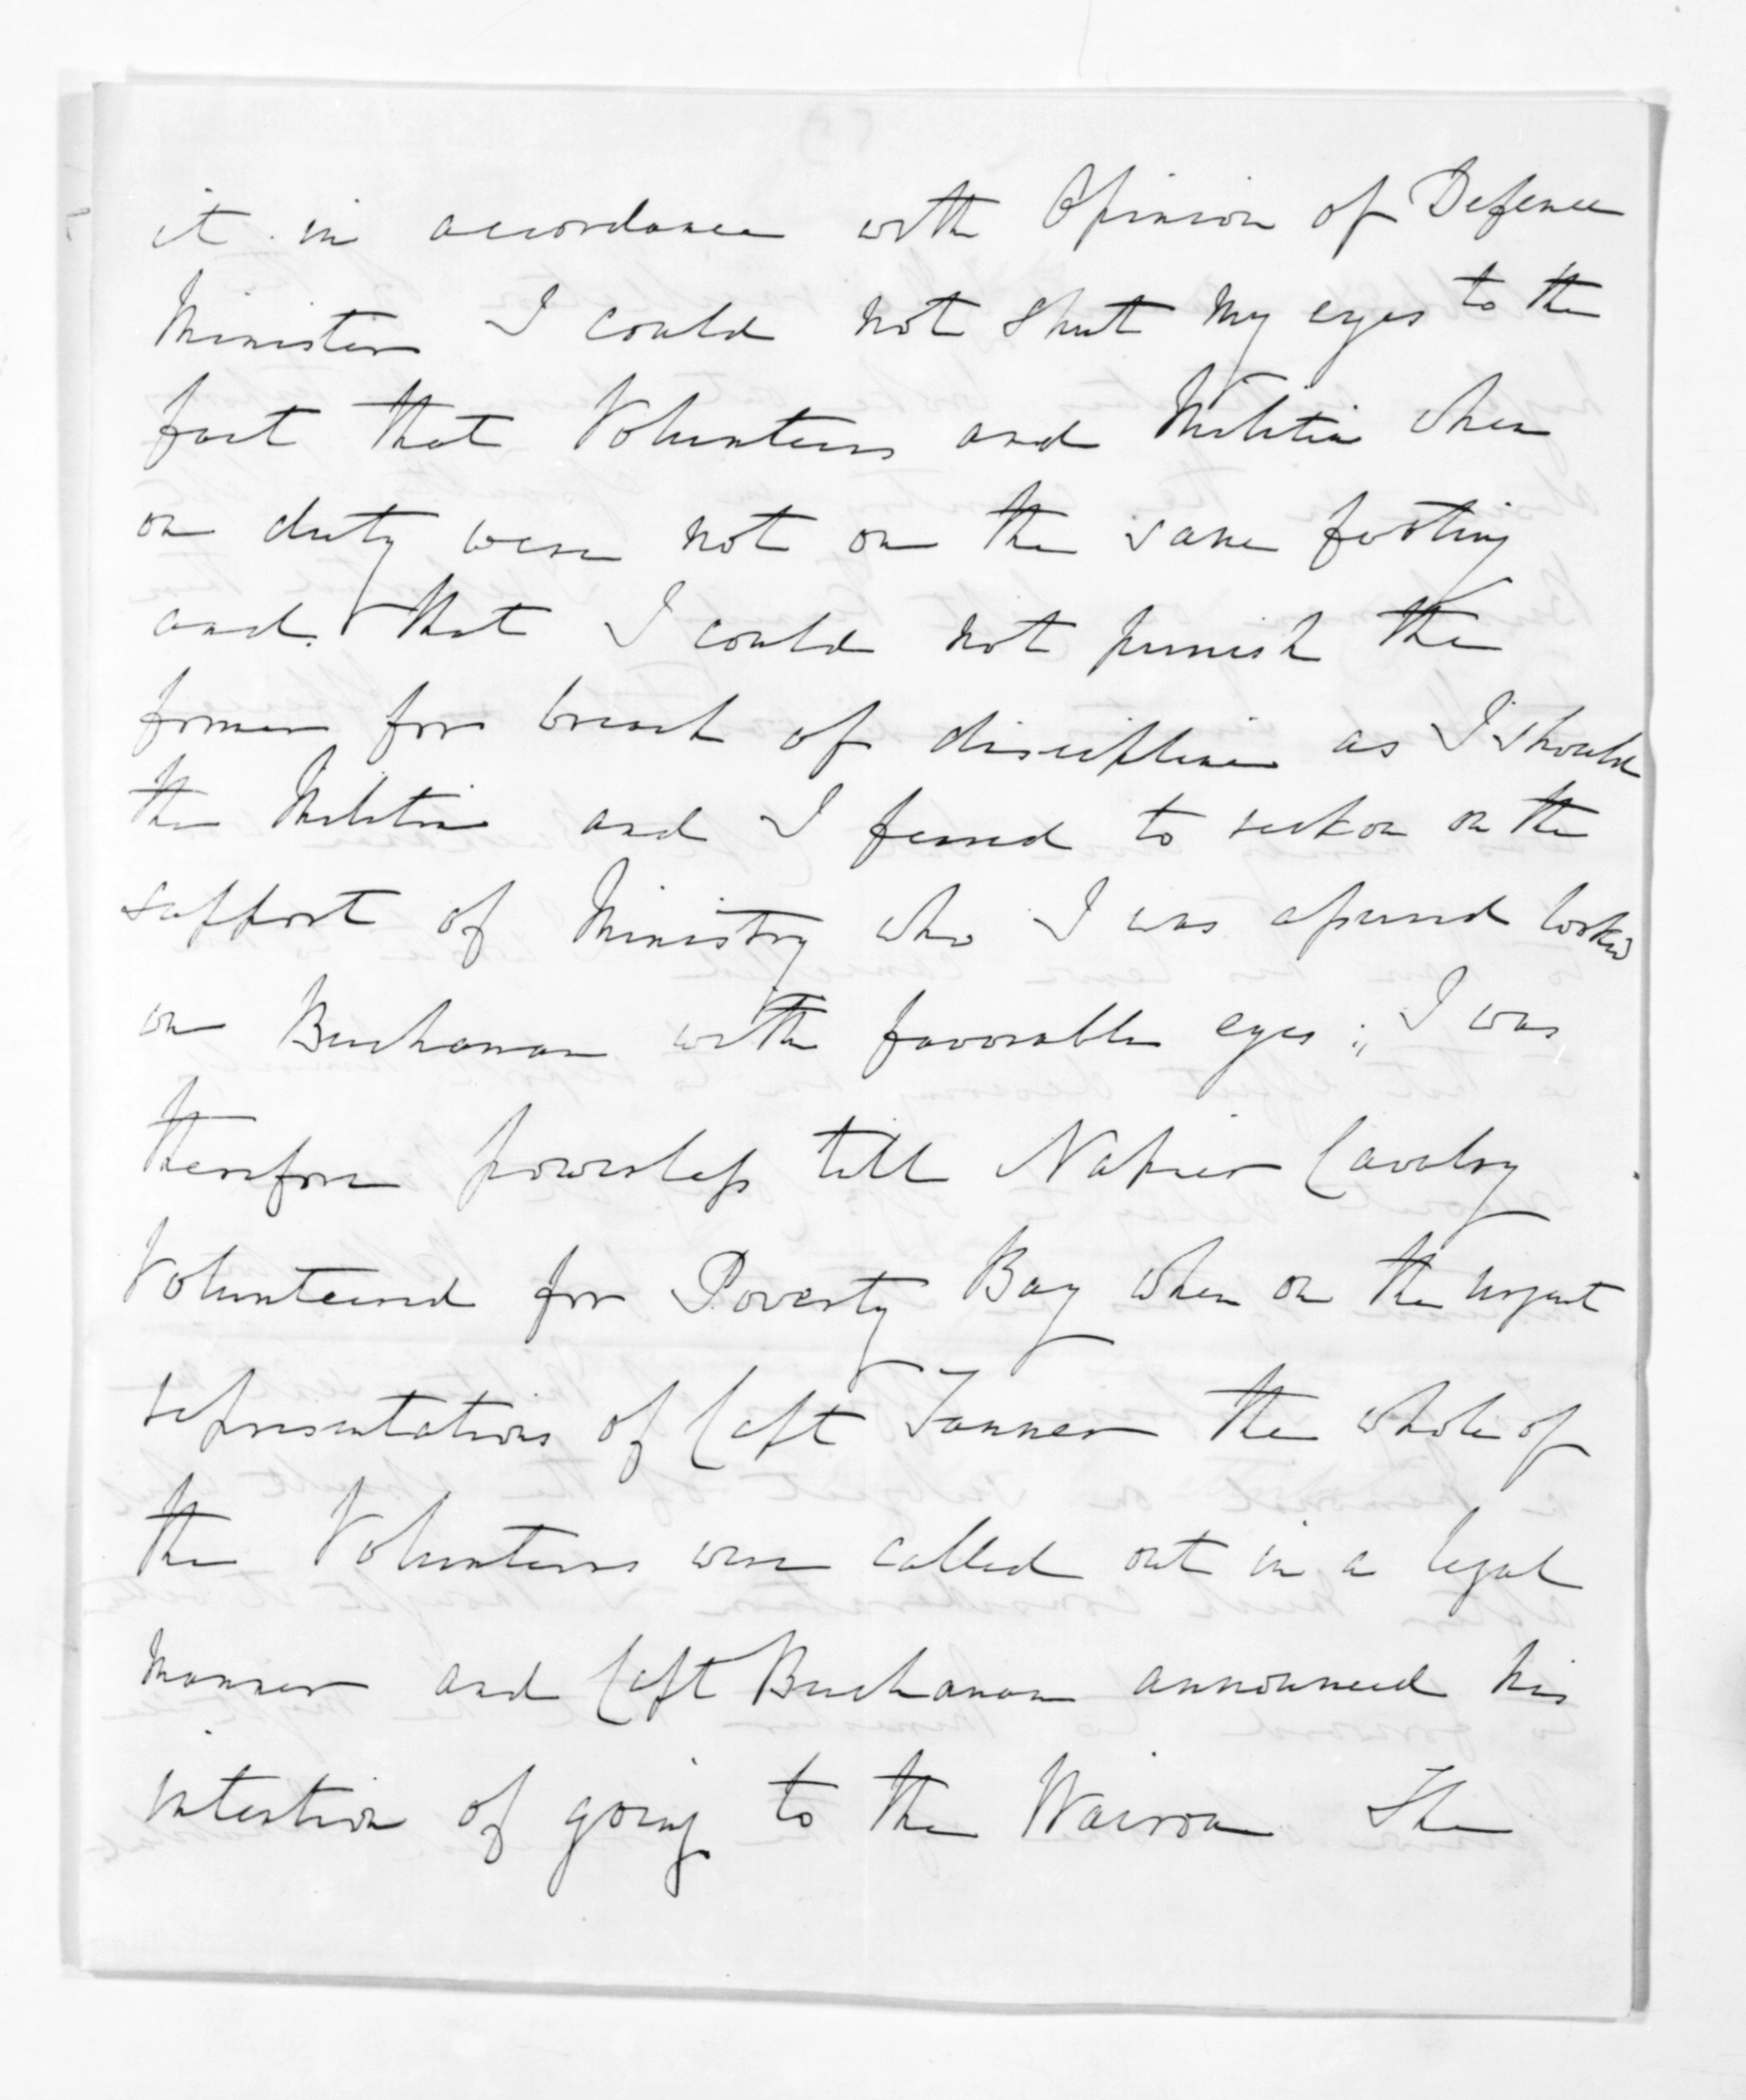 it in accordance with Opinion of Defence
Minister I could not shut my eyes to the
fact that Volunteers and Militia when
on duty were not on the same footing
and that I could not punish the
former for breach of discipline as I should
the Militia and I feared to reckon on the
support of Ministry who I was assured looked
on Buchanan with favorable eyes; I was
therefore powerless till Napier Cavalry
Volunteered for Poverty Bay when on the urgent
representations of Capt Tanner the whole of
the Volunteers were called out in a legal
manner and Capt Buchanan announced his
intention of going to the Wairoa The